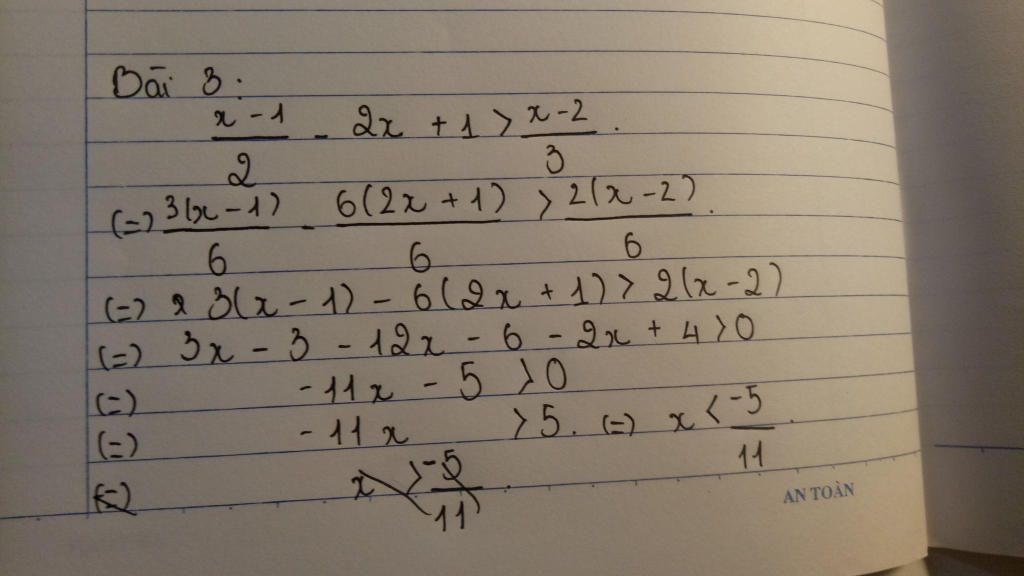 Bài 3:
x - 1 / 2 - 2x + 1 > x - 2 / 3 .
(=) 3(x - 1) / 6 - 6(2x + 1) / 6 > 2(x - 2) / 6 .
(=) 3(x - 1) - 6(2x + 1) > 2(x - 2)
(=) 3x - 3 - 12x - 6 - 2x + 4 > 0
(=) -11x - 5 > 0
(=) -11x > 5. (=) x < -5 / 11 .
(=) x > -5 / 11 .
AN TOÀN